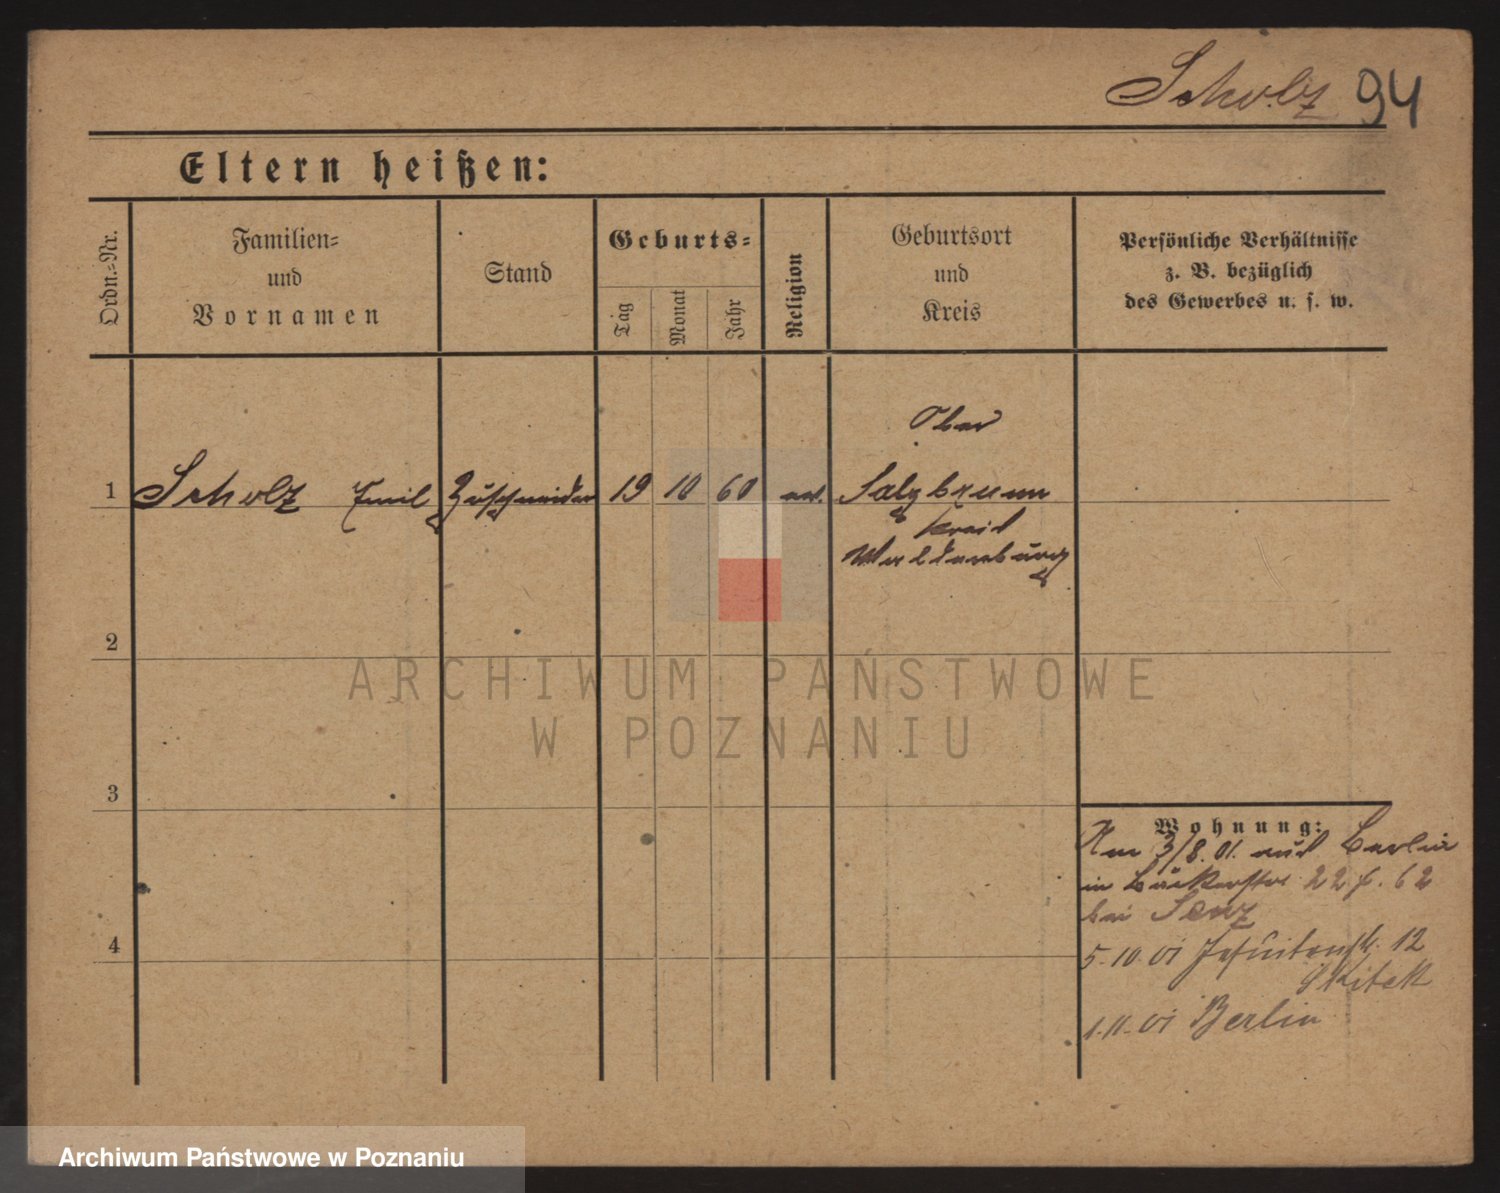 Scholz 94
Eltern heißen:
Ordn.-Nr.
Familien-
und
Vornamen
Stand
Geburts-
Tag
Monat
Jahr
Religion
Geburtsort
und
Kreis
Persönliche Verhältnisse
z. B. bezüglich
des Gewerbes u. s. w.
Ober
1 Scholz Emil Zuschneider 19 10 60 ev. Salzbrunn
Kreis
Waldenburg
2
ARCHIWUM PAŃSTWOWE
W POZNANIU
3
Wohnung:
Am 3/8. 01. aus Berlin
in Bäckerstr 22 b. 62
bei
4
5.10.01 Jesuitenstr. 12
Skitek
1.11.01 Berlin
Archiwum Państwowe w Poznaniu